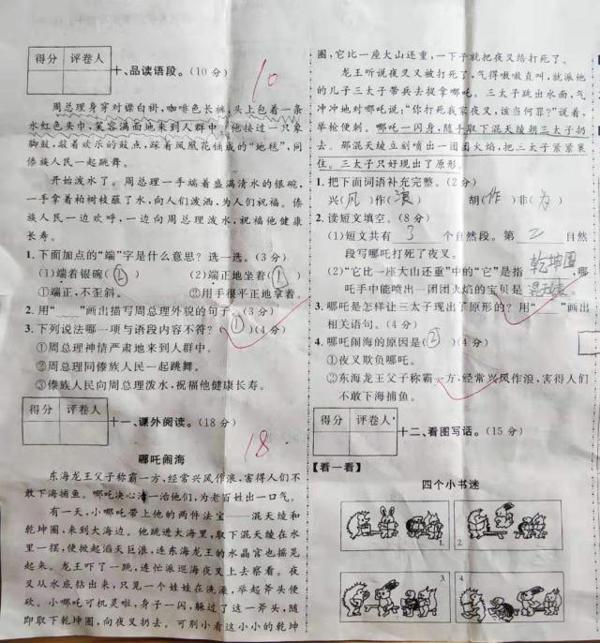 得分 评卷人
十、品读语段。(10分)
10
周总理身穿对襟白褂,咖啡色长裤,头上包着一条
水红色头巾,笑容满面地来到人群中。他接过一只象
脚鼓,敲着欢乐的鼓点,踩着凤凰花铺成的“地毯”,同
傣族人民一起跳舞。
开始泼水了。周总理一手端着盛满清水的银碗,
一手拿着柏树枝蘸了水,向人们泼洒,为人们祝福。傣
族人民一边欢呼,一边向周总理泼水,祝福他健康
长寿。
1.下面加点的“端”字是什么意思?选一选。(3分)
(1)端着银碗(②) (2)端正地坐着(①)
①端正,不歪斜。 ②用手很平正地拿着。
2.用“ ”画出描写周总理外貌的句子。(3分)
3.下列说法哪一项与语段内容不符?(①)(4分)
①周总理神情严肃地来到人群中。
②周总理同傣族人民一起跳舞。
③傣族人民向周总理泼水,祝福他健康长寿。
得分 评卷人
十一、课外阅读。(18分)
18
哪吒闹海
东海龙王父子称霸一方,经常兴风作浪,害得人们不
敢下海捕鱼。哪吒决心治一治他们,为老百姓出一口气。
有一天,小哪吒带上他的两件法宝——混天绫和
乾坤圈,来到大海边。他跳进大海里,取下混天绫在水
里一摆,便掀起滔天巨浪,连东海龙王的水晶宫也摇晃
起来。龙王吓了一跳,连忙派巡海夜叉上去察看。夜
叉从水底钻出来,只见一个娃娃在洗澡,举起斧头便
砍。小哪吒可机灵啦,身子一闪,躲过了这一斧头,随
即取下乾坤圈,向夜叉扔去。可别小看这小小的乾坤
圈,它比一座大山还重,一下子就把夜叉给打死了。
龙王听说夜叉又被打死了,气得嗷嗷直叫,就派他
的儿子三太子带兵去捉拿哪吒。三太子跳出水面,气
冲冲地对哪吒说:“你打死我家夜叉,该当何罪?”说着,
举枪便刺。哪吒一闪身,随手取下混天绫朝三太子扔
去。那混天绫立刻喷出一团团火焰,把三太子紧紧裹
住。三太子只好现出了原形。
1.把下面词语补充完整。(2分)
兴(风)作(浪) 胡(作)非(为)
2.读短文填空。(8分)
(1)短文共有 3 个自然段。第 二 自然
段写哪吒打死了夜叉。
(2)“它比一座大山还重”中的“它”是指 乾坤圈,哪
吒手中能喷出一团团火焰的宝贝是 混天绫。
3.哪吒是怎样让三太子现出了原形的?用“ ”画出
相关语句。(4分)
4.哪吒闹海的原因是(②)(4分)
①夜叉欺负哪吒。
②东海龙王父子称霸一方,经常兴风作浪,害得人们
不敢下海捕鱼。
得分 评卷人
十二、看图写话。(15分)
【看一看】
四个小书迷
1 2
3 4